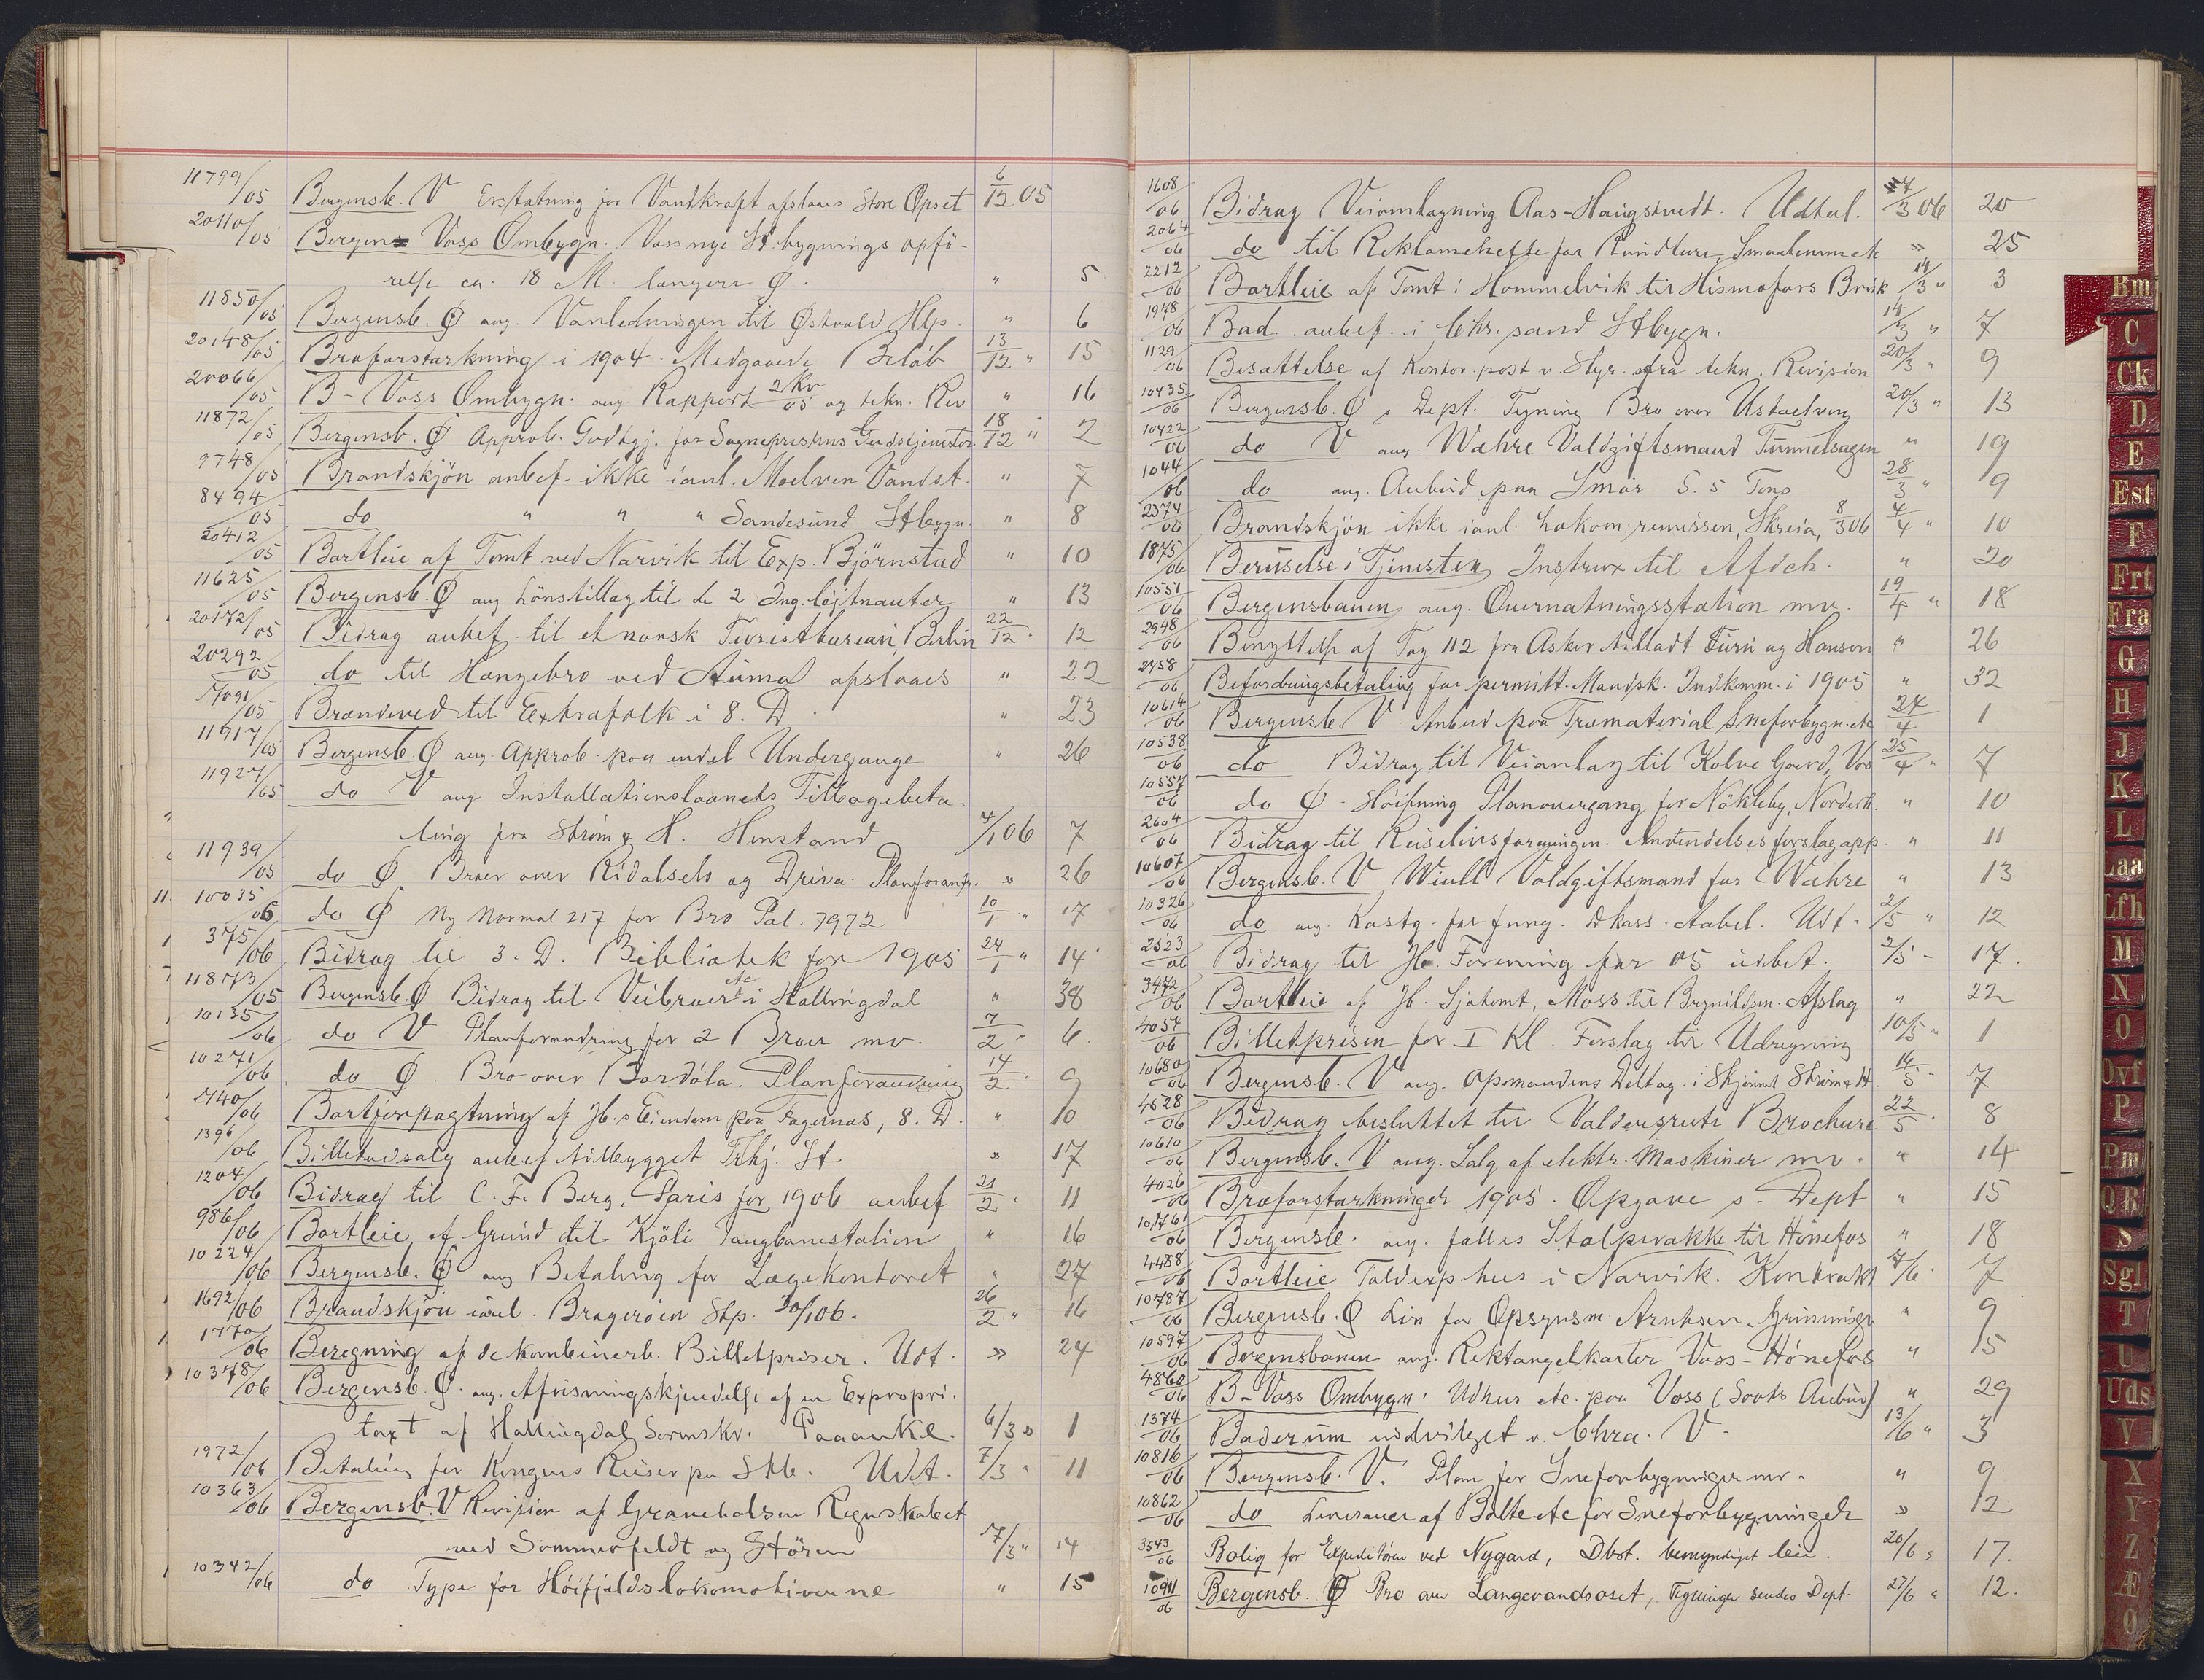 11799/05 Bergensb. V Erstatning for Vandkraft afslaaes Store Opset 6/12 05
20110/05 Bergens Voss Ombygn. Voss nye St. bygnings opfö-
relse ca. 18 M. længere Ø. " 5
11850/05 Bergensb. Ø ang. Vanledningen til Østvold Hlp. " 6
20148/05 Broforstærkning i 1904. Medgaaede Belöb 13/12 " 15
20066/05 B-Voss Ombygn. ang. Rapport 2 Kv 05 og tekn. Rev " 16
11872/05 Bergensb. Ø Approb. Godtgj. for Sogneprestens Gudstjenester 18/12 " 2
9748/05 Brandskjön anbef. ikke ianl. Moelven Vandst. " 7
8494/05 do " " " Sandesund Stbygn. " 8
20412/05 Bortleie af Tomt ved Narvik til Exp. Björnstad " 10
11625/05 Bergensb. Ø ang. Lönstillæg til de 2 Ing. löjtnanter " 13
20172/05 Bidrag anbef. til et norsk Turistbureau, Berlin 22/12 " 12
20292/05 do til Hængebro ved Auma afslaaes " 22
/05 Brændeved til Extrafolk i 8. D. " 23
11917/05 Bergensb. Ø ang. Approb. paa endel Undergange " 26
11927/05 do V ang Installationslaanets Tilbagebeta-
ling fra Ström & H. Henstand 4/1 06 7
11939/05 do Ø Broer over Ridalselv og Driva. Planforandr. " 26
10035/06 do Ø Ny Normal 217 for Bro Pæl. 7972 10/1 " 17
375/06 Bidrag til 3. D. Bibliotek for 1905 24/1 " 14
11873/05 Bergensb. Ø Bidrag til Veibroer etc i Hallingdal " 38
10135/06 do V Planforandring for 2 Broer mv. 7/2 " 6
10271/06 do Ø. Bro over Bardöla. Planforandring 14/2 " 9
2140/06 Bortforpagtning af Jb.s Eiendom paa Fagernæs, 8. D. " 10
1396/06 Billetudsalg anbef tilbygget Trhj. St " 17
1204/06 Bidrag til C. F. Berg, Paris for 1906 anbef 21/2 " 11
986/06 Bortleie af Grund til Kjöli Taugbanestation " 16
10224/06 Bergensb. Ø ang Betaling for Lægekontoret " 27
1692/06 Brandskjön ianl. Brageröen Stp. 30/1 06. 26/2 " 16
1770/06 Beregning af de kombinerb. Billetpriser. Udt. " 24
10378/06 Bergensb. Ø. ang. Afvisningskjendelse af en Expropri.
taxt af Hallingdal Sorenskr. Paaanke. 6/3 " 1
1972/06 Betaling for Kongens Reiser paa Stb. Udt. 7/3 " 11
10363/06 Bergensb. V Revision af Gravehalsen Regnskabet
ved Sommerfeldt og Stören 7/3 " 14
10342/06 do Type for Höifjeldslokomotiverne " 15
1608/06 Bidrag Veiomlægning Aas-Haugstvedt. Udtal. 7/3 06 20
2064/06 do til Reklamehefte for Rundture, Smaalenene etc " 25
2212/06 Bortleie af Tomt i Hommelvik til Hismofors Bruk 14/3 " 3
1948/06 Bad anbef. i Chr.sand Stbygn. 14/3 " 7
1129/06 Besættelse af Kontor.post v. Styr. fra tekn. Revision 20/3 " 9
10435/06 Bergensb. Ø s. Dept. Tegning Bro over Ustaelven 20/3 " 13
10422/06 do V ang Wæhre Voldgiftsmand Tunnelsagen " 19
1044/06 do ang. Anbud paa Smör S. 5 Tons 28/3 " 9
2374/06 Brandskjön ikke ianl. Lokom.remissen, Skreia, 8/3 06 4/4 " 10
1875/06 Beruselse i Tjenesten Instrux til Afdch. " 20
10551/06 Bergensbanen ang. Overnatningsstation mv. 19/4 " 18
2948/06 Benyttelse af Tog 112 fra Asker tilladt Furu og Hanson " 26
2458/06 Befordringsbetaling for permitt. Mandsk. Indkomm. i 1905 " 32
10614/06 Bergensb. V. Anbud paa Træmaterial Sneforbygn. etc 24/4 1
10538/06 do Bidrag til Veianlæg til Kolve Gaard, Vos 25/4 " 7
10557/06 do Ø - Höining Planovergang for Nökleby, Norderh. " 10
2604/06 Bidrag til Reiselivsforeningen. Anvendelsesforslag app. " 11
10607/06 Bergensb. V Wiull Voldgiftsmand for Wæhre " 13
10326/06 do ang. Kostg. for fung. Dkass. Aabel. Udt. 2/5 " 12
2523/06 Bidrag til Jb. Forening for 05 udbet. 2/5 - 17.
3472/06 Bortleie af Jb. Sjötomt, Moss til Brynildsen. Afslag " 22
4054/06 Billetprisen for I Kl. Forslag til Udregning 10/5 " 1
10680/06 Bergensb. V ang. Opmandens Deltag. i Skjönnet Ström & H. 14/5 " 7
4528/06 Bidrag besluttet til Valdersrute Brochure 22/5 " 8
10610/06 Bergensb. V ang. Salg af elektr. Maskiner mv. " 14
4026/06 Broforstærkninger 1905. Opgave s. Dept " 15
10761/06 Bergensb. ang. fælles Stolperække til Hönefos " 18
4488/06 Bortleie Tolderphus i Narvik. Kontrakt 7/6 " 7
10787/06 Bergensb. Ø Lön for Opsynsm. Arntsen. " 9
10597/06 Bergensbanen ang. Rektangelkarter Voss-Hönefos " 15
4860/06 B-Voss Ombygn. Udhus etc. paa Voss (Soots Anbud) " 29
1374/06 Baderum indvilget v. Chra. V. 13/6 " 3
10816/06 Bergensb. V. Plan for Sneforbygninger mv. " 9
10862/06 do Leverance af Bolte etc for Sneforbygninger " 12
3543/06 Bolig for Expeditören ved Nygard, Dbst. bemyndiget leie. 20/6 " 17.
10911/06 Bergensb. Ø Bro over Langevandsoset, Tegninger sendes Dept. 27/6 " 12.
Bm
C
Ck
D
E
Est
F
Frt
Fra
G
H
J
K
L
Laa
Lfh
M
N
O
Ovf
P
Pm
QR
S
Sgl
T
U
Uds
V
X
Y
Z
Æ
Ø